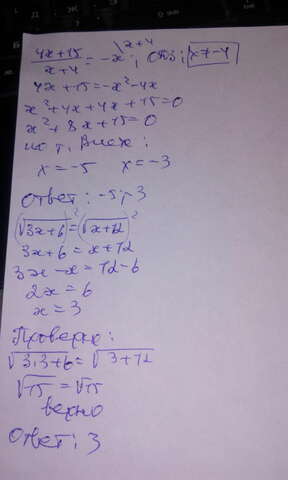 (4x+15)/(x+4) = -x \x+4 ; ОДЗ: x≠-4
4x+15=-x²-4x
x²+4x+4x+15=0
x²+8x+15=0
по т. Виета:
x=-5 x=-3
Ответ: -5;-3
(√3x+6)²=(√x+12)²
3x+6=x+12
3x-x=12-6
2x=6
x=3
Проверка:
√3·3+6=√3+12
√15=√15
верно
Ответ: 3